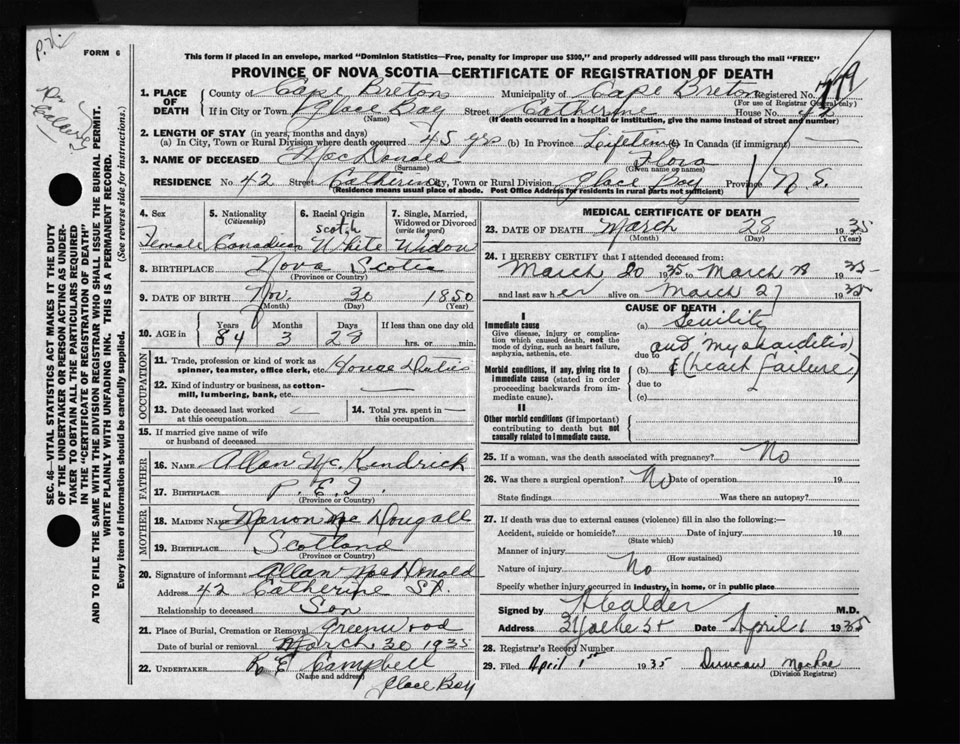 P.N.
FORM 6
This form if placed in an envelope, marked "Dominion Statistics—Free, penalty for improper use $300," and properly addressed will pass through the mail "FREE"
PROVINCE OF NOVA SCOTIA—CERTIFICATE OF REGISTRATION OF DEATH
Dr Calder
SEC. 46—VITAL STATISTICS ACT MAKES IT THE DUTY
OF THE UNDERTAKER OR PERSON ACTING AS UNDER-
TAKER TO OBTAIN ALL THE PARTICULARS REQUIRED
IN THE "CERTIFICATE OF REGISTRATION OF DEATH"
AND TO FILE THE SAME WITH THE DIVISION REGISTRAR WHO SHALL ISSUE THE BURIAL PERMIT.
WRITE PLAINLY WITH UNFADING INK. THIS IS A PERMANENT RECORD.
Every item of information should be carefully supplied. (See reverse side for instructions.)
1. PLACE OF DEATH County of Cape Breton Municipality of Cape Breton Registered No.
(For use of Registrar General only)
If in City or Town, Glace Bay Street Catherine House No. 42
(Name) (If death occurred in a hospital or institution, give the name instead of street and number)
2. LENGTH OF STAY (in years, months and days)
(a) In City, Town or Rural Division where death occurred 45 yrs (b) In Province Lifetime (c) In Canada (if immigrant)
3. NAME OF DECEASED MacDonald Flora
(Surname) (Given name or names)
RESIDENCE No 42 Street Catherine City, Town or Rural Division Glace Bay Province N.S.
(Residence means usual place of abode. Post Office Address for residents in rural parts not sufficient)
4. Sex 5. Nationality (Citizenship) 6. Racial Origin 7. Single, Married, Widowed or Divorced (write the word)
Scotch
Female Canadian White Widow
8. BIRTHPLACE Nova Scotia
(Province or Country)
9. DATE OF BIRTH Nov. 30 1850
(Month) (Day) (Year)
10. AGE in Years Months Days If less than one day old
84 3 28 hrs. or min.
OCCUPATION
11. Trade, profession or kind of work as
spinner, teamster, office clerk, etc. House Duties
12. Kind of industry or business, as cotton-
mill, lumbering, bank, etc.
13. Date deceased last worked at this occupation 14. Total yrs. spent in this occupation
15. If married give name of wife
or husband of deceased
FATHER
16. NAME Allan McKendrick
17. BIRTHPLACE P.E.I.
(Province or Country)
MOTHER
18. MAIDEN NAME Marion MacDougall
19. BIRTHPLACE Scotland
(Province or Country)
20. Signature of informant Allan MacDonald
Address 42 Catherine St.
Relationship to deceased Son
21. Place of Burial, Cremation or Removal Greenwood
Date of burial or removal March 30 1935
22. UNDERTAKER R E Campbell
(Name and address) Glace Bay
MEDICAL CERTIFICATE OF DEATH
23. DATE OF DEATH March 28 1935
(Month) (Day) (Year)
24. I HEREBY CERTIFY that I attended deceased from:
March 20 1935 to March 28 1935
and last saw her alive on March 27 1935
CAUSE OF DEATH
I
Immediate cause (a) Senility
Give disease, injury or complica-
tion which caused death, not the
mode of dying, such as heart failure,
asphyxia, asthenia, etc.
due to and myocarditis
Morbid conditions, if any, giving rise to
immediate cause (stated in order
proceeding backwards from im-
mediate cause).
(b) & (heart failure)
due to
(c)
II
Other morbid conditions (if important)
contributing to death but not
causally related to immediate cause.
25. If a woman, was the death associated with pregnancy? No
26. Was there a surgical operation? No Date of operation 19
State findings Was there an autopsy?
27. If death was due to external causes (violence) fill in also the following:—
Accident, suicide or homicide? Date of injury 19
(State which)
Manner of injury
(How sustained)
Nature of injury No
Specify whether injury occurred in industry, in home, or in public place
Signed by A Calder M.D.
Address St Date April 1 1935
28. Registrar's Record Number
29. Filed April 1st 1935 Duncan MacRae
(Division Registrar)